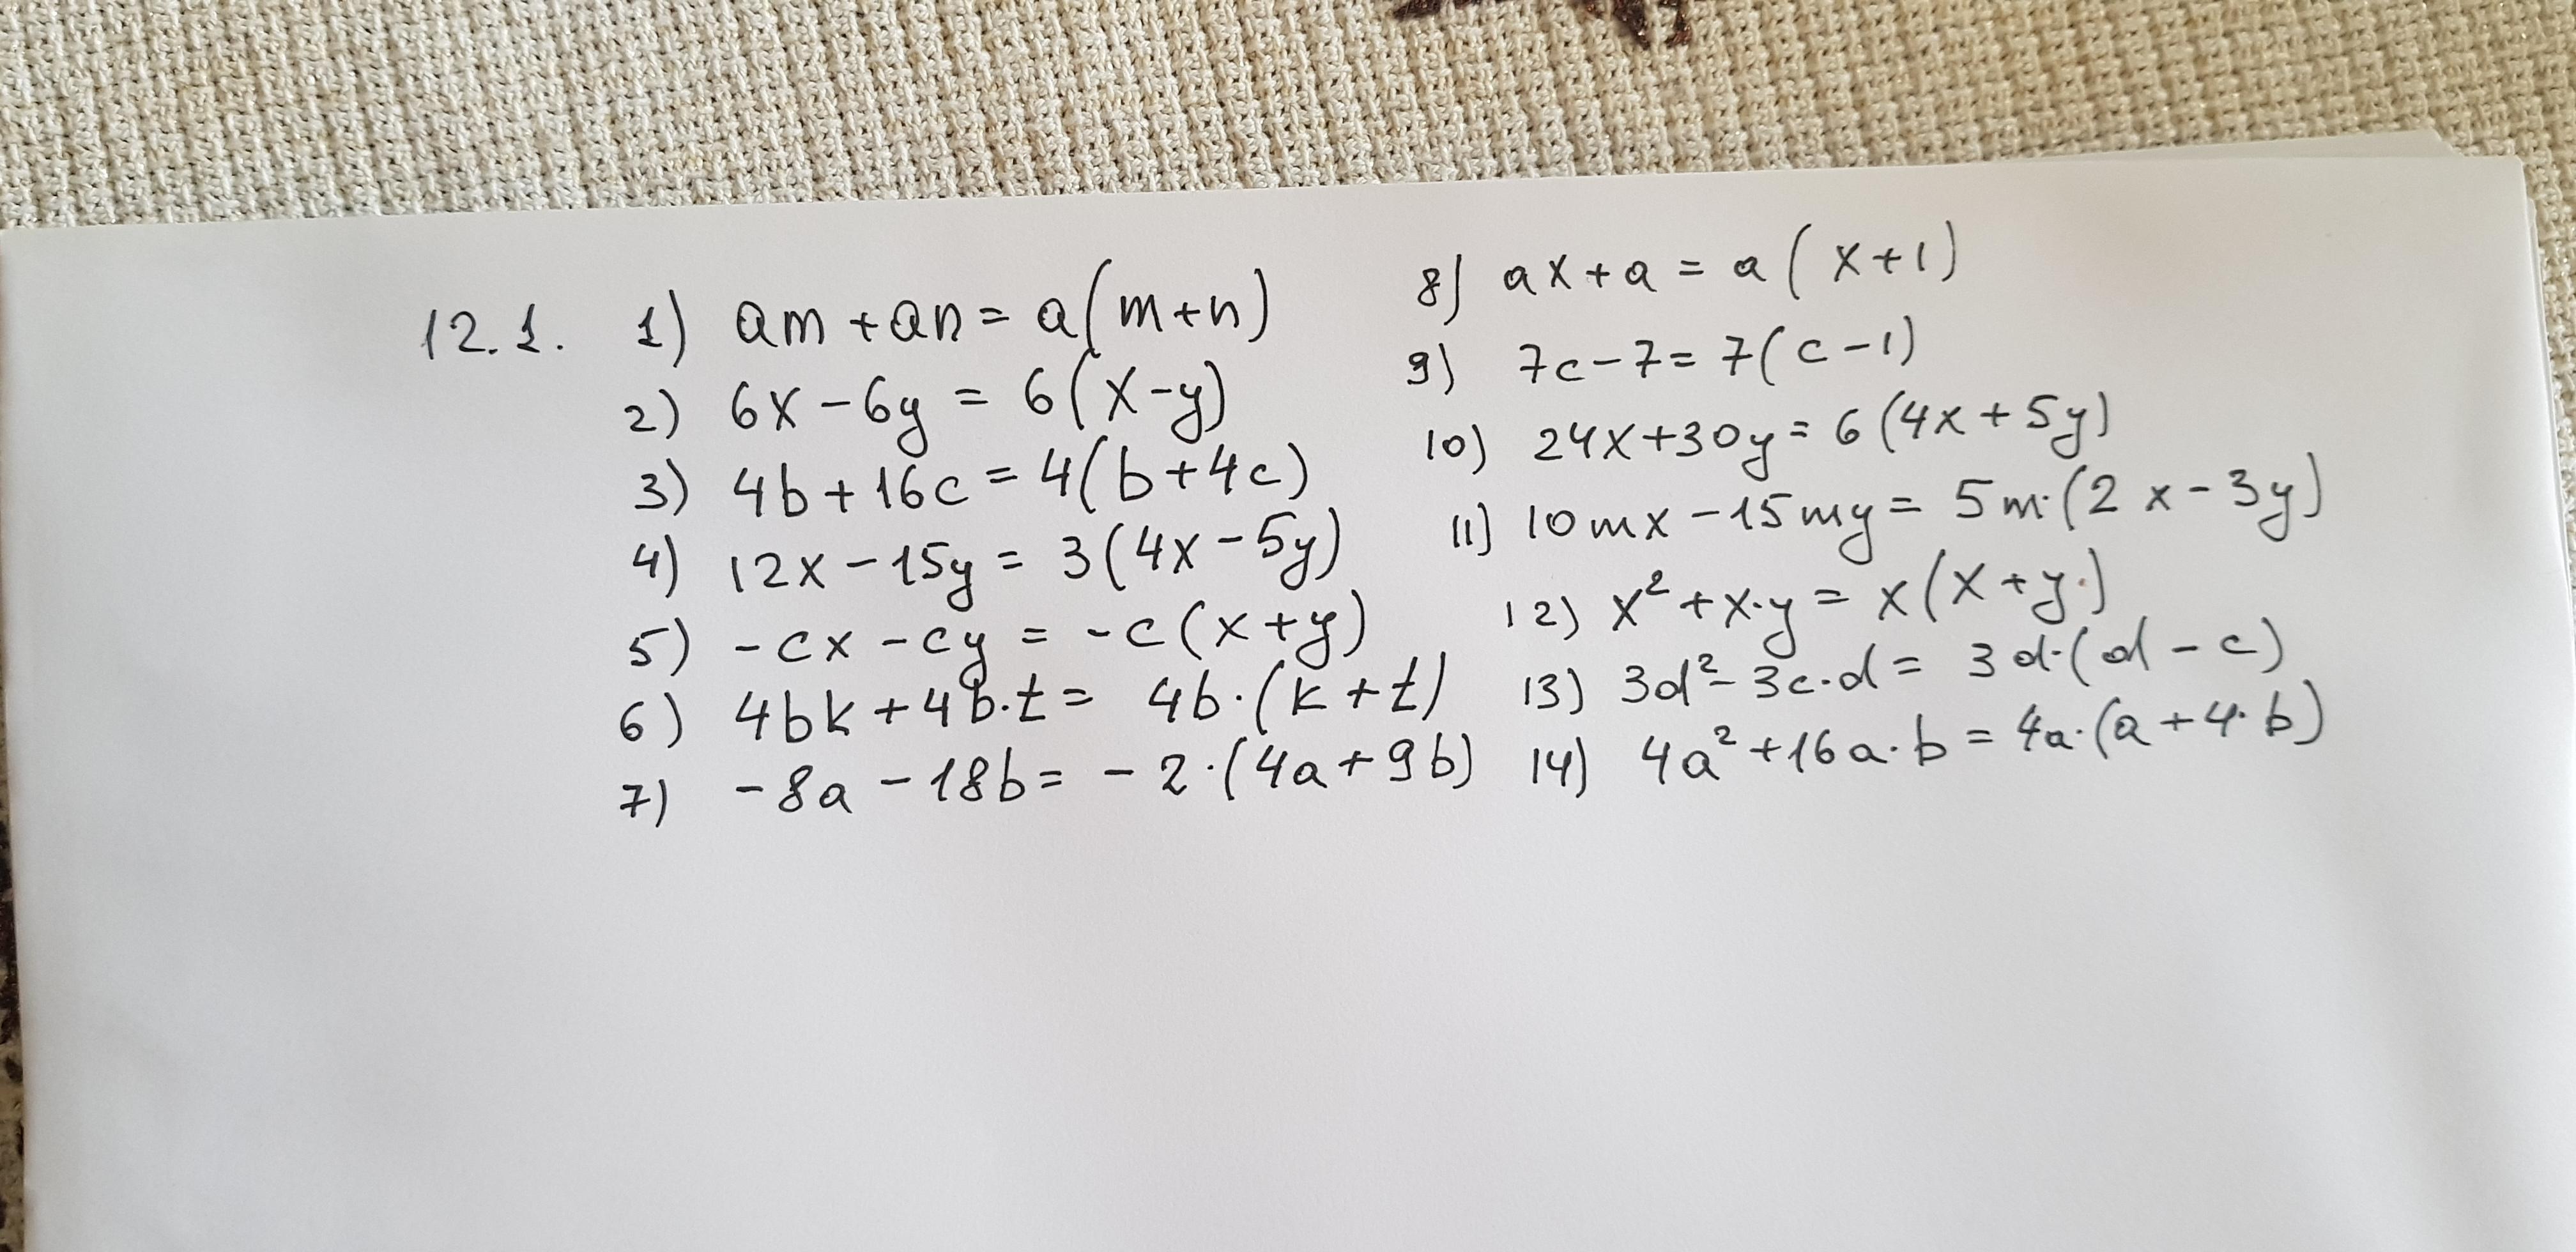 12.1. 1) am + an = a(m+n)
2) 6x - 6y = 6(x-y)
3) 4b + 16c = 4(b+4c)
4) 12x - 15y = 3(4x-5y)
5) -cx - cy = -c(x+y)
6) 4bk + 4b·t = 4b·(k+t)
7) -8a - 18b = -2·(4a+9b)
8) ax + a = a(x+1)
9) 7c - 7 = 7(c-1)
10) 24x+30y = 6(4x+5y)
11) 10mx - 15my = 5m·(2x-3y)
12) x² + x·y = x(x+y)
13) 3d² - 3c·d = 3d·(d-c)
14) 4a² + 16a·b = 4a·(a+4·b)